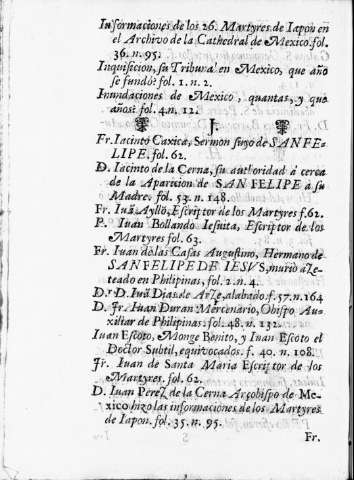 Informaciones de los 26. Martyres de Iapon en
el Archivo de la Cathedral de Mexico. fol.
36. n. 95.
Inquisicion, su Tribunal en Mexico, que año
se fundò? fol. 1. n. 2.
Inundaciones de Mexico, quantas, y que
años? fol. 4. n. 12.
I.
Fr. Iacinto Caxica, Sermon suyo de SAN FE-
LIPE. fol. 62.
D. Iacinto de la Cerna, su authoridad á cerca
de la Aparicion de SAN FELIPE á su
Madre. fol. 53. n. 148.
Fr. Iuã Ayllõ, Escriptor de los Martyres f. 62.
P. Iuan Bollando Iesuita, Escriptor de los
Martyres fol. 63.
Fr. Iuan de las Casas Augustino, Hermano de
SAN FELIPE DE IESVS, murió alẽ-
teado en Philipinas, fol. 2. n. 4.
Dr. D. Iuã Diaz de Arze, alabado. f. 57. n. 164
D. Fr. Iuan Duran Mercenario, Obispo Au-
xiliar de Philipinas. fol. 48. n. 132.
Iuan Escoto, Monge Benito, y Iuan Escoto el
Doctor Subtil, equivocados. f. 40. n. 108.
Fr. Iuan de Santa Maria Escriptor de los
Martyres. fol. 62.
D. Iuan Perez de la Cerna Arçobispo de Me-
xico hizo las informaciones de los Martyres
de Iapon. fol. 35. n. 95.
Fr.